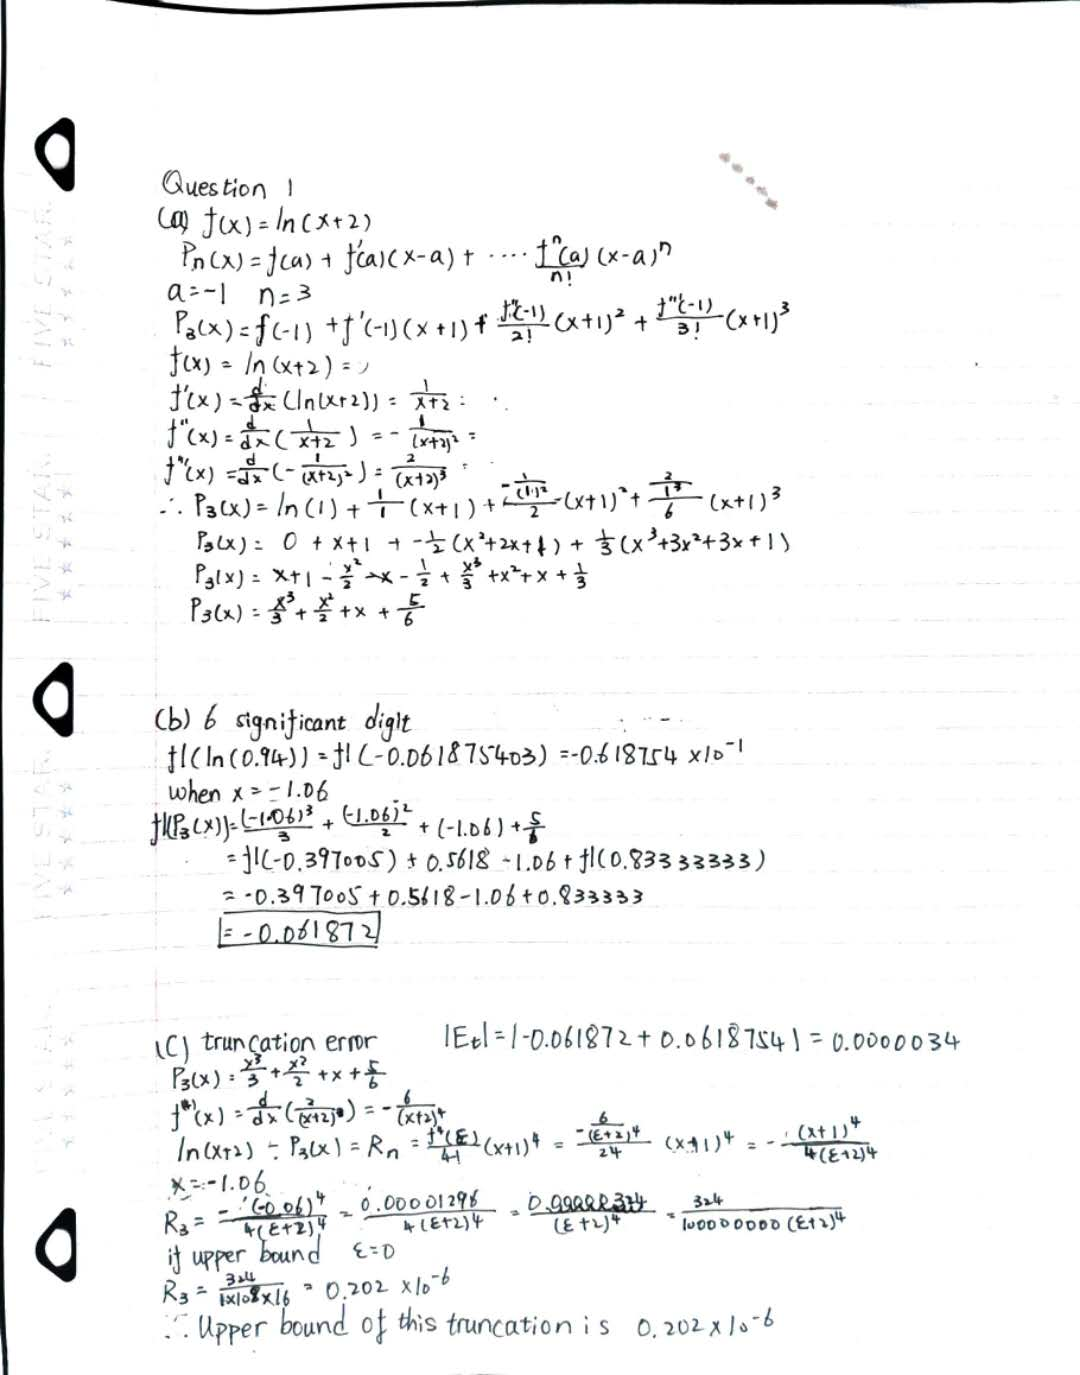 Question 1
(a) f(x) = ln(x+2)
Pn(x) = f(a) + f'(a)(x-a) + .... f^n(a)/n! (x-a)^n
a=-1 n=3
P3(x) = f(-1) + f'(-1)(x+1) + f''(-1)/2! (x+1)² + f'''(-1)/3! (x+1)³
f(x) = ln(x+2) =
f'(x) = d/dx (ln(x+2)) = 1/(x+2) :
f''(x) = d/dx (1/(x+2)) = -1/(x+2)² =
f'''(x) = d/dx (-1/(x+2)²) = 2/(x+2)³
∴ P3(x) = ln(1) + 1/1 (x+1) + (-1/(1)²)/2 (x+1)² + (2/1³)/6 (x+1)³
P3(x) = 0 + x+1 + -1/2 (x²+2x+1) + 1/3 (x³+3x²+3x+1)
P3(x) = x+1 - x²/2 - x - 1/2 + x³/3 + x² + x + 1/3
P3(x) = x³/3 + x²/2 + x + 5/6
(b) 6 significant digit
fl(ln(0.94)) = fl(-0.061875403) = -0.618754 x10^-1
when x = -1.06
fl(P3(x)) = (-1.06)³/3 + (-1.06)²/2 + (-1.06) + 5/6
= fl(-0.397005) + 0.5618 - 1.06 + fl(0.83333333)
= -0.397005 + 0.5618 - 1.06 + 0.833333
= -0.061872
(C) truncation error |Et| = |-0.061872 + 0.0618754| = 0.0000034
P3(x) = x³/3 + x²/2 + x + 5/6
f^(4)(x) = d/dx (2/(x+2)³) = -6/(x+2)⁴
ln(x+2) - P3(x) = Rn = f⁴(ε)/4! (x+1)⁴ = (-6/(ε+2)⁴)/24 (x+1)⁴ = -(x+1)⁴/4(ε+2)⁴
x = -1.06
R3 = -(-0.06)⁴/4(ε+2)⁴ = 0.00001296/4(ε+2)⁴ = /(ε+2)⁴ = 324/100000000(ε+2)⁴
if upper bound ε=0
R3 = 324/1x10⁸x16 = 0.202 x10^-6
∴ Upper bound of this truncation is 0.202 x 10^-6